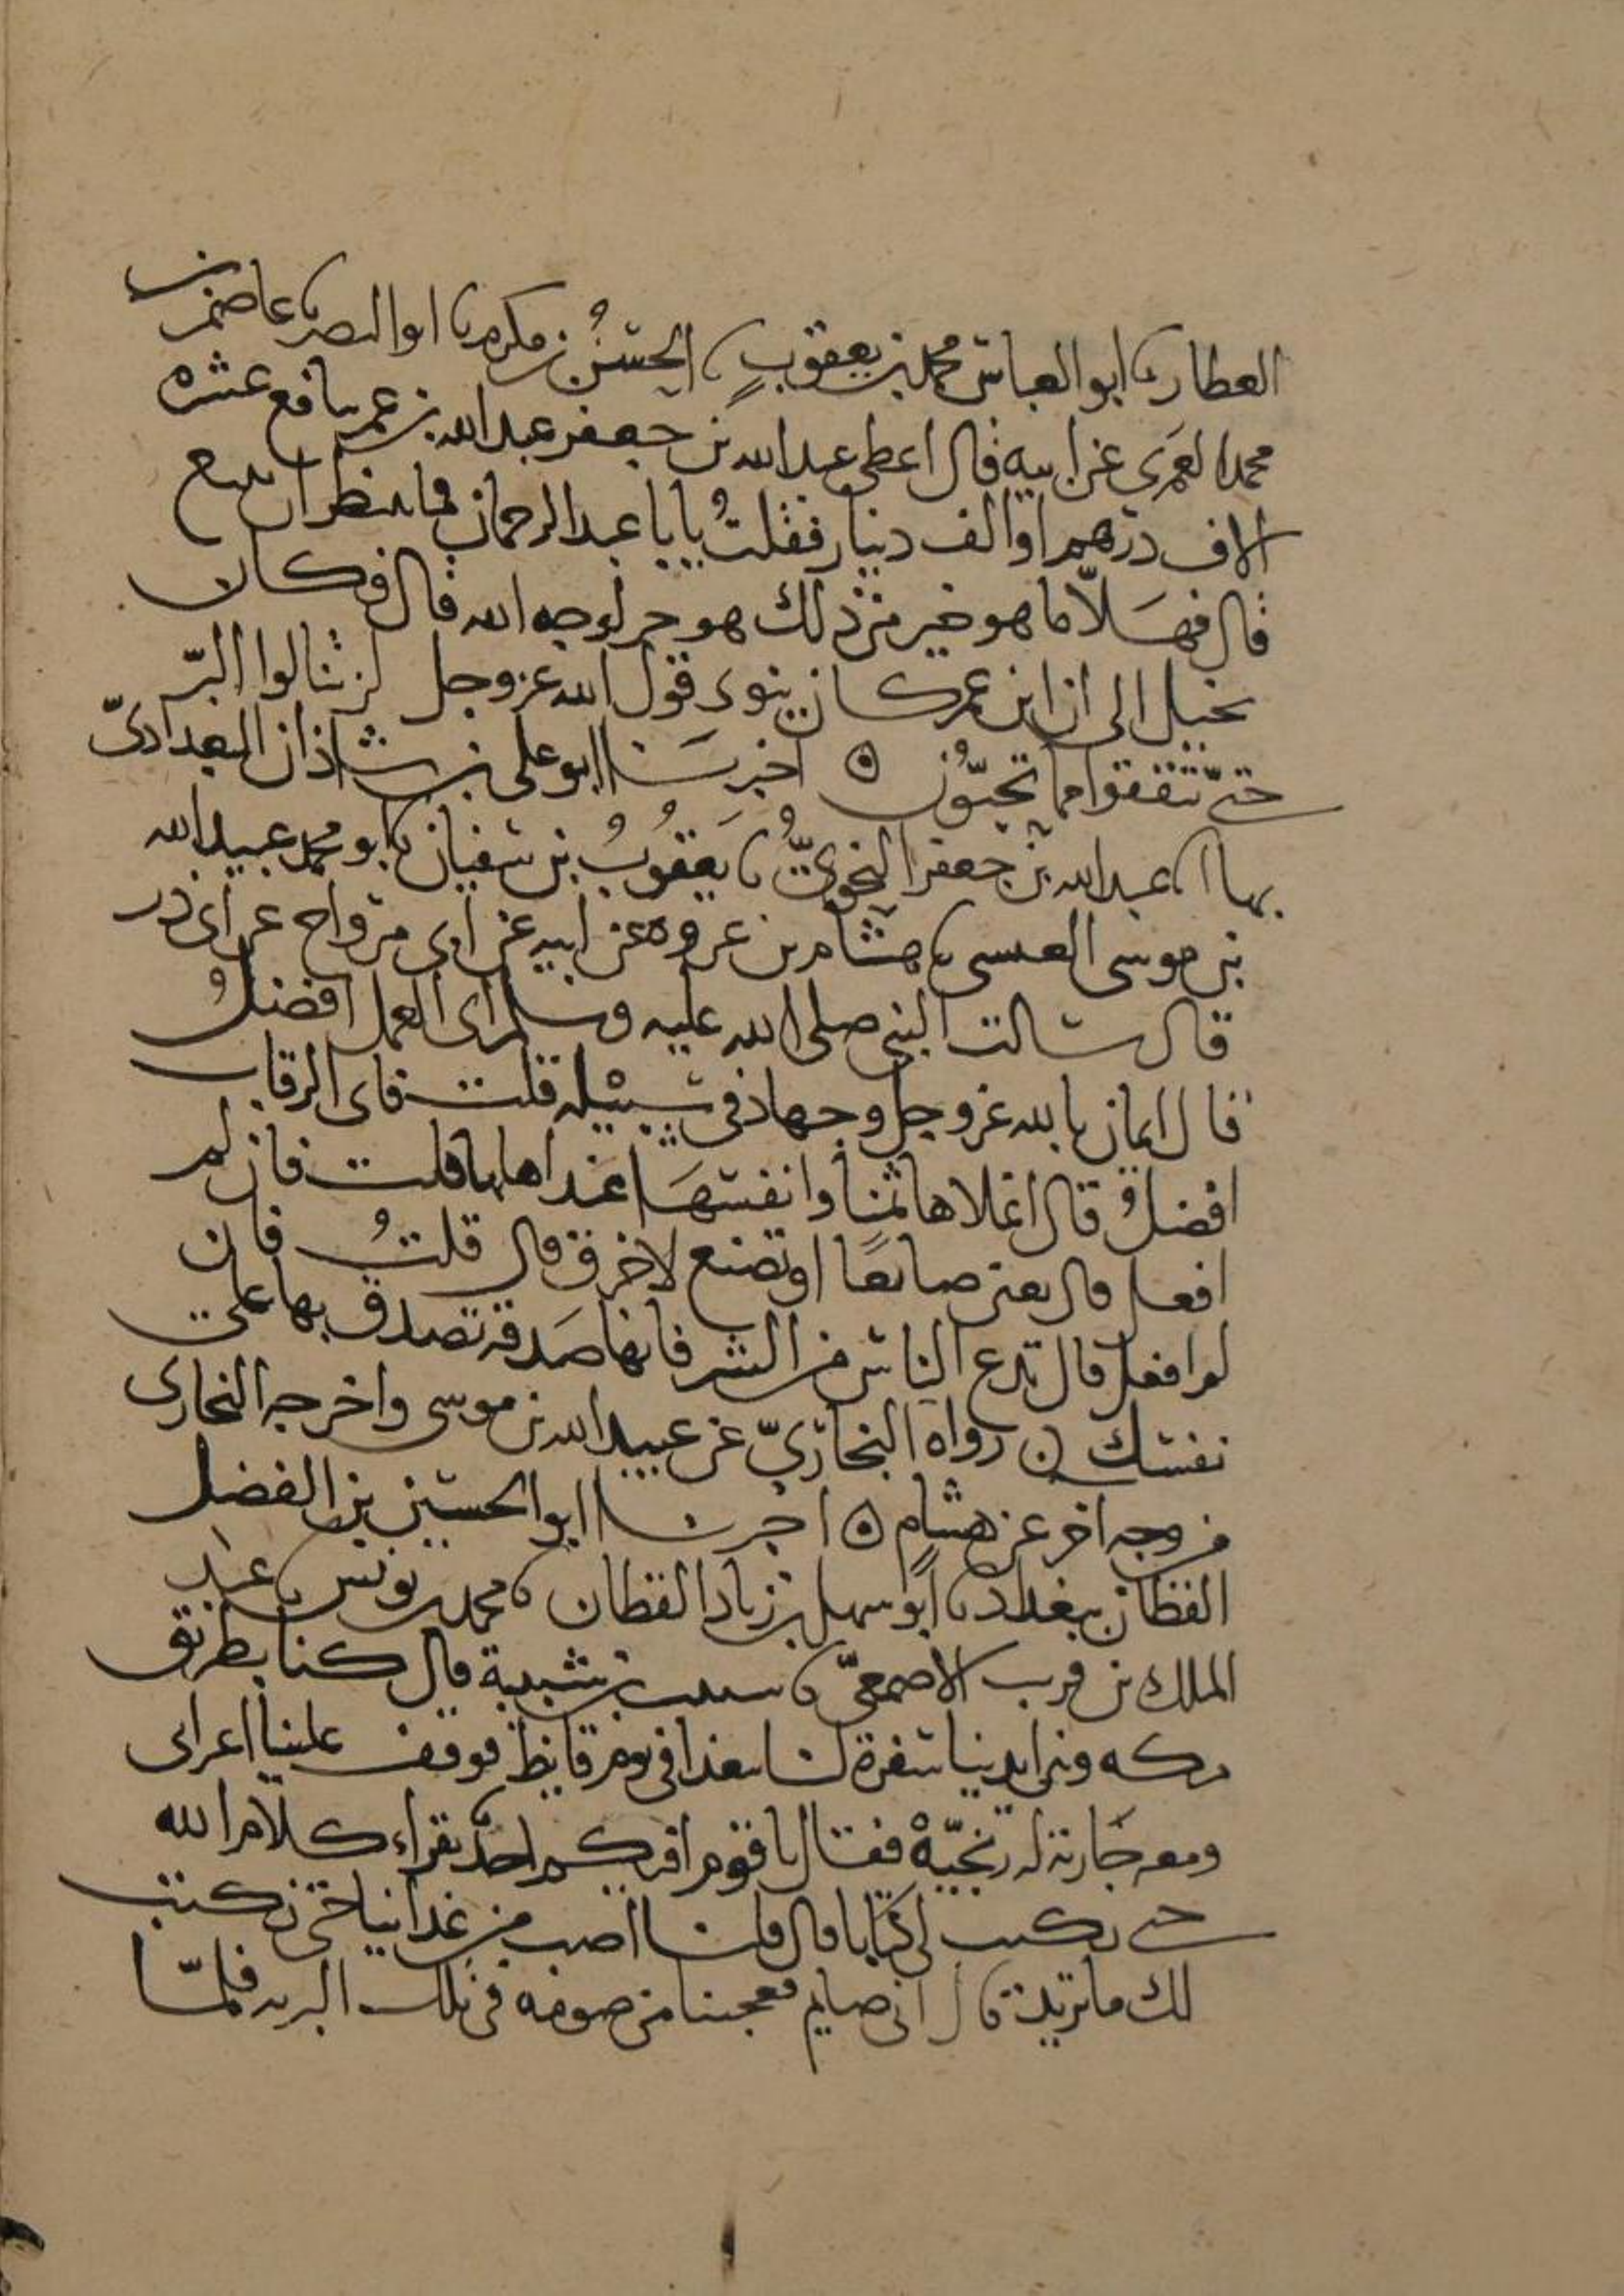 العطار نا ابو العباس محمد بن يعقوب نا الحسن بن مكرم نا ابو النصر نا عاصم بن
محمد العمري عن ابيه قال اعطى عبد الله بن جعفر عبد الله بن عمر بنافع عشره
الاف درهم او الف دينار فقلت يابا عبد الرحمان فما تنتظر ان تبيع
قال فهلا ما هو خير من ذلك هو حر لوجه الله قال فكان
يخيل الى ان ابن عمر كان ينوى قول الله عز وجل لن تنالوا البر
حتى تنفقوا مما تحبون ه اخبرنا ابو على بن شاذان البغدادي
بها انا عبد الله بن جعفر النحوي نا يعقوب بن سفيان نا ابو محمد عبيد الله
بن موسى العبسى نا هشام بن عروه عن ابيه عن ابى مرواح عن ابى ذر
قال سالت النبى صلى الله عليه وسلم اى العمل افضل
قال ايمان بالله عز وجل وجهاد فى سبيله قلت فاى الرقاب
افضل قال اغلاها ثمنا وانفسها عند اهلها قلت فان لم
افعل قال تعين صانعا او تصنع لاخرق قال قلت فان
لم افعل قال تدع الناس من الشر فانها صدقه تصدق بها على
نفسك ه رواه البخاري عن عبيد الله بن موسى واخرجه البخارى
من وجه اخر عن هشام ه اخبرنا ابو الحسين بن الفضل
القطان ببغداد نا ابو سهل بن زياد القطان نا محمد بن يونس نا عبد
الملك بن قريب الاصمعي نا شبيب بن شيبة قال كنا بطريق
مكه وبين ايدينا سفرة لنا نتغدا فى يوم قايظ فوقف علينا اعرابى
ومعه جارية له زنجية فقال يا قوم افيكم احد يقراء كلام الله
حتى يكتب لى كتابا قال قلنا اصب من غداينا حتى نكتب
لك ما تريد قال انى صايم فعجبنا من صومه فى تلك البريه فلما